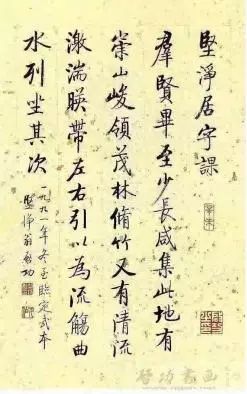 堅淨居字課
羣賢畢至少長咸集此地有
崇山峻領茂林脩竹又有清流
激湍暎帶左右引以為流觴曲
水列坐其次
一九九一年冬至臨定武本
堅淨翁啟功
啓功書画